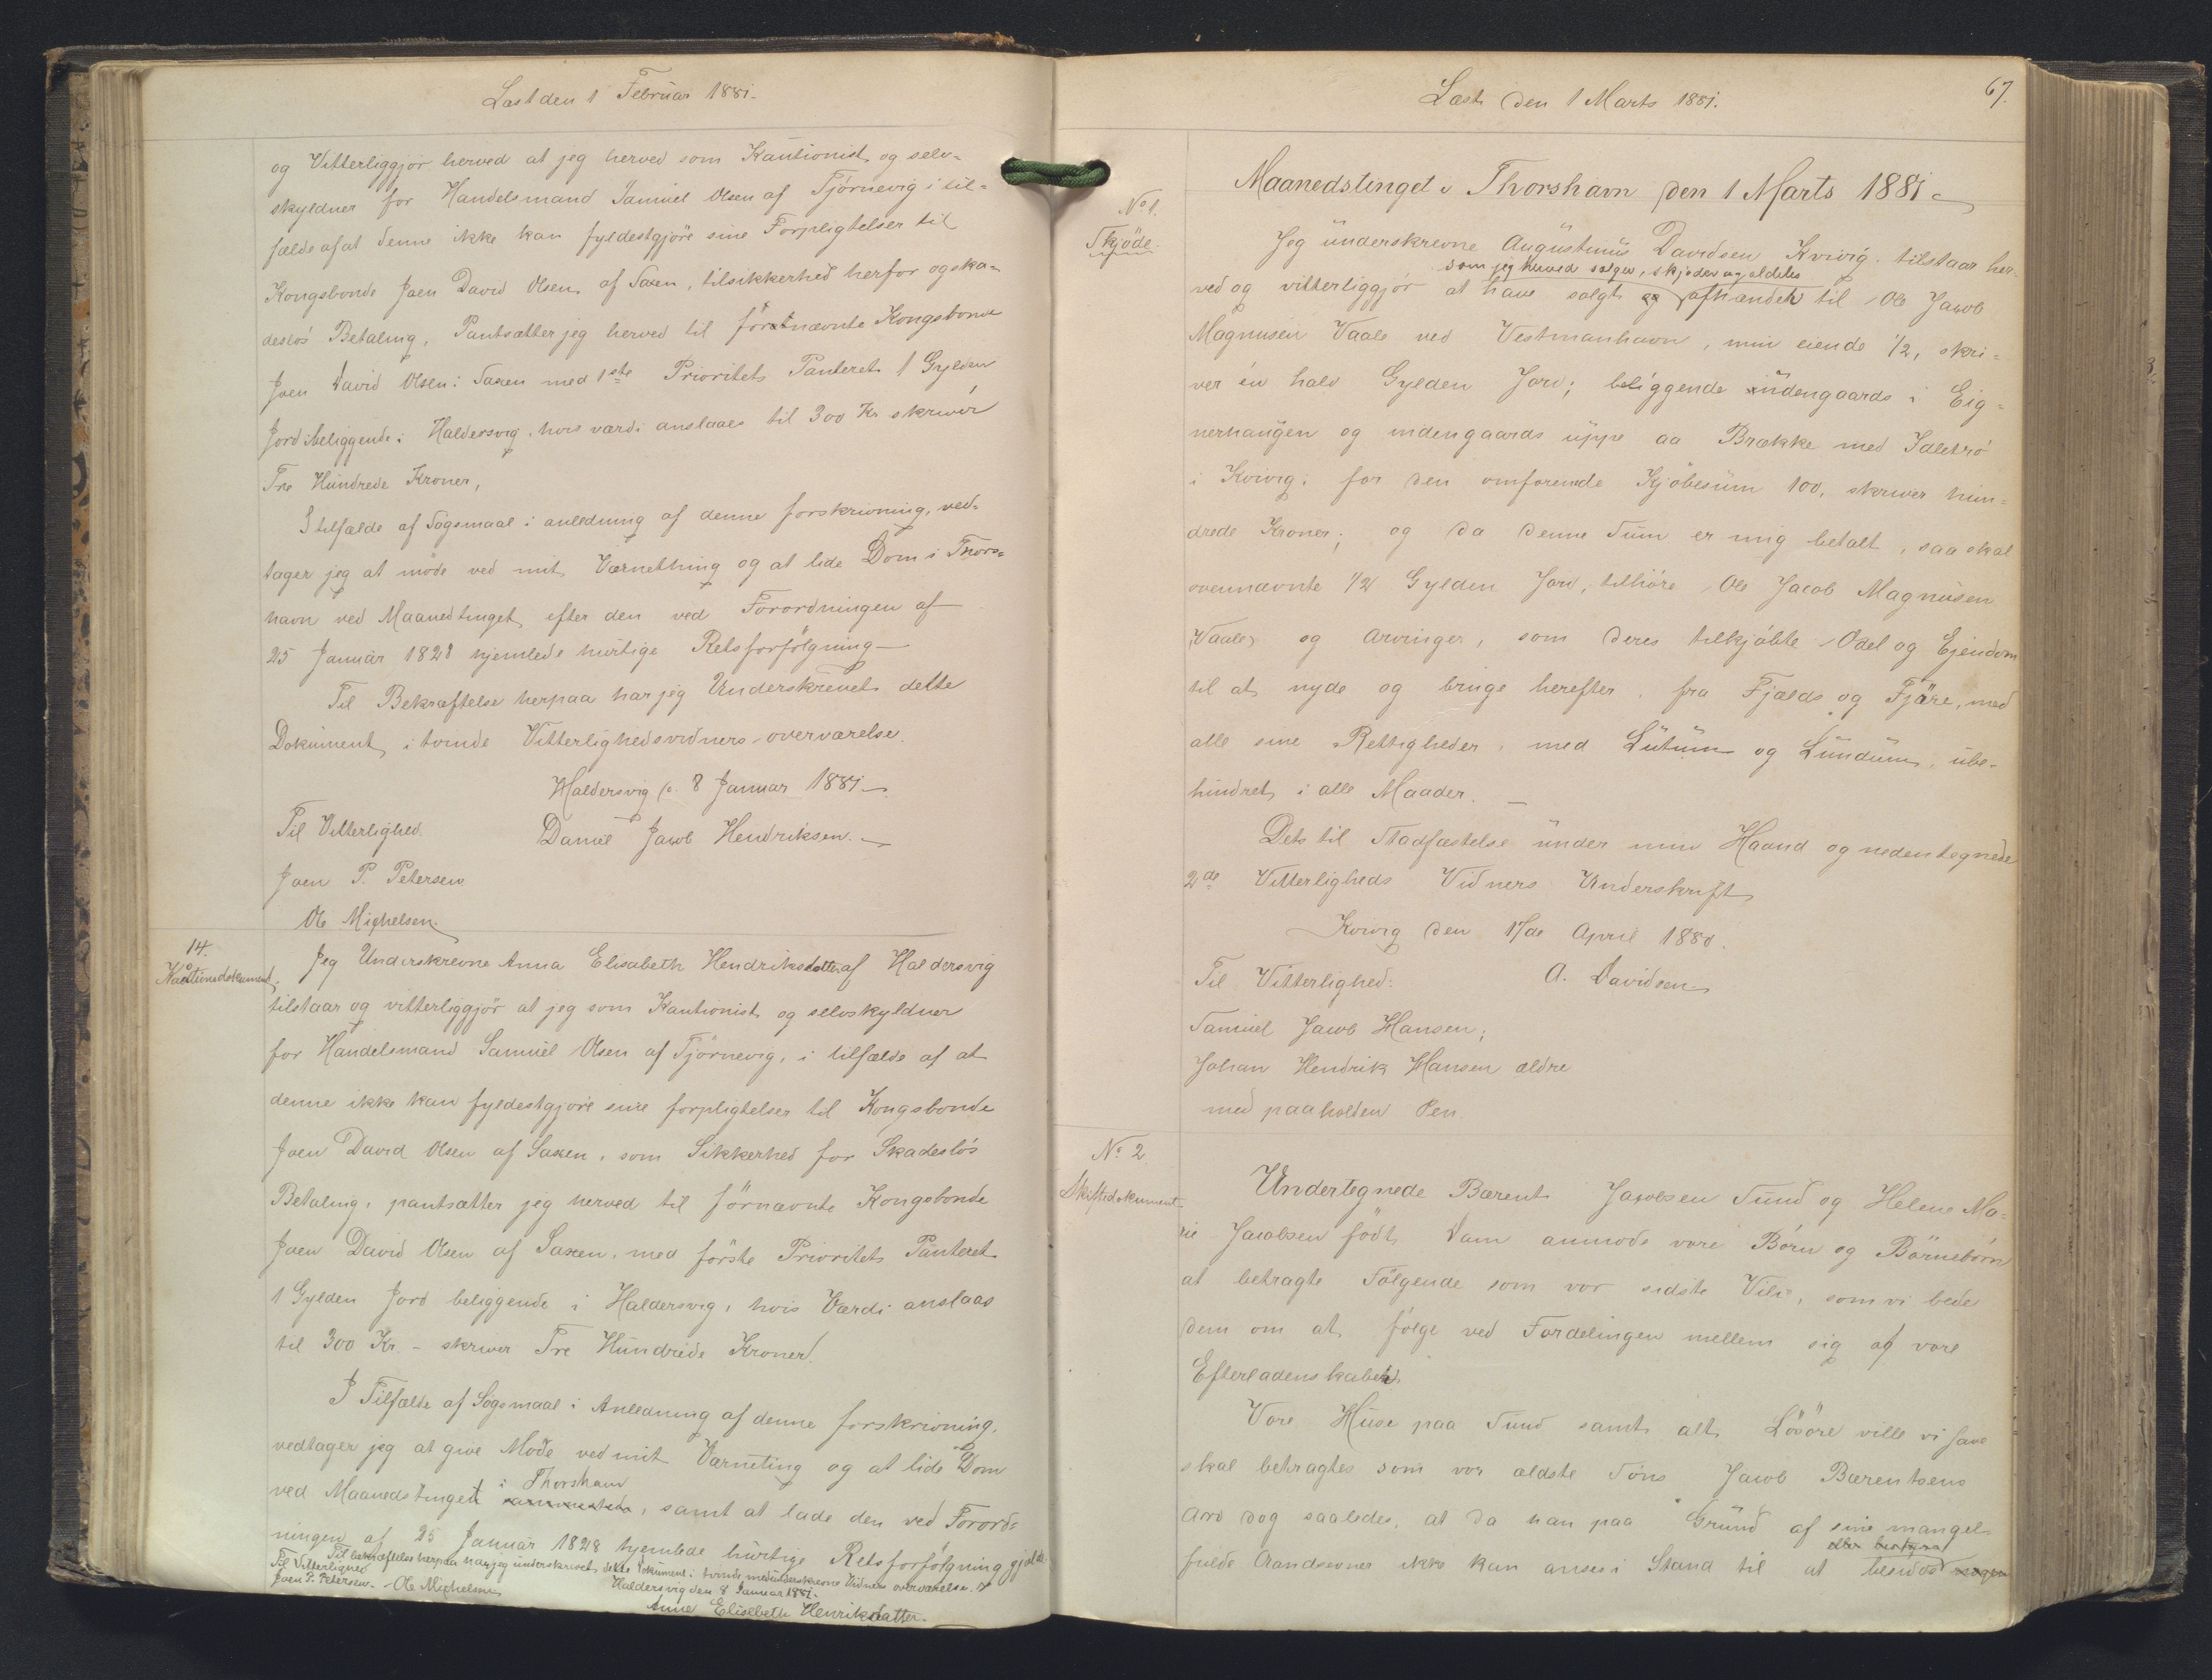 Læst den 1 Februar 1881.
og Vitterliggjør herved at jeg herved som Kautionist og selv-
skyldner for Handelsmand Samuel Olsen af Tjørnevig i til-
fælde af at denne ikke kan fyldestgjöre sine Forpligtelser til
Kongsbonde Joen David Olsen af Saxen, til sikkerhed herfor og ska-
deslös Betaling, Pantsætter jeg herved til förstnævnte Kongsbonde
Joen David Olsen i Saxen med 1ste Prioritets Panteret 1 Gylden
Jord beliggende i Haldersvig, hvis værdi anslaaes til 300 Kr skriver
Tre Hundrede Kroner,
I tilfælde af Sögsmaal i anledning af denne forskrivning, ved-
tager jeg at möde ved mit Værnething og at lide Dom i Thors-
havn ved Maanedtinget efter den ved Forordningen af
25 Januar 1828 hjemlede hurtige Retsforfölgning—
Til Bekræftelse herpaa har jeg Underskrevet dette
Dokument i tvende Vitterlighedsvidners overværelse.
Haldersvig p. 8 Januar 1881.
Til Vitterlighed. Daniel Jacob Hendriksen.
Joen P. Petersen
Ole Michelsen.
14.
Kautionsdokument.
Jeg Underskrevne Anna Elisabeth Hendriksdatter af Haldersvig
tilstaar og vitterliggjör at jeg som Kautionist og selvskyldner
for Handelsmand Samuel Olsen af Tjörnevig, i tilfælde af at
denne ikke kan fyldestgjöre sine forpligtelser til Kongsbonde
Joen David Olsen af Saxen, som Sikkerhed for Skadeslös
Betaling, pantsætter jeg herved til förnævnte Kongsbonde
Joen David Olsen af Saxen, med förste Prioritets Panteret
1 Gylden Jord beliggende i Haldersvig, hvis Værdi anslaas
til 300 Kr. - skriver Tre Hundrede Kroner.
I Tilfælde af Sögsmaal i Anledning af denne forskrivning,
vedtager jeg at give Möde ved mit Værneting og at lide Dom
ved Maanedstinget i Thorshavn, samt at lade den ved Forord-
ningen af 25 Januar 1828 hjemlede hurtige Retsforfölgning gjælde.
Til bekræftelse herpaa har jeg underskrevet dette Dokument i tvende medunderskrevne Vidners overværelse.
Til Vitterlighed Haldersvig den 8 Januar 1881.
Joen P. Petersen. Ole Michelsen
Anne Elisebeth Henriksdatter.
Læst den 1 Marts 1881. 67.
Maanedstinget i Thorshavn den 1 Marts 1881.
No 1.
Skjöde.
Jeg underskrevne Augustinus Davidsen Kvivig, tilstaar her-
som jeg herved sælger, skjøder og aldeles
ved og vitterliggjör at have solgt og afhænder til Ole Jacob
Magnusen Vaale ved Vestmanhavn, min eiende 1/2, skri-
ver én halv Gylden Jord; beliggende udengaards i Eig-
nerhaugen og indengaards uppe aa Brække med Saletrö
i Kvivig; for den omforenede Kjöbesum 100, skriver hun-
drede Kroner; og da denne Sum er mig betalt, saa skal
ovennævnte 1/2 Gylden Jord, tilhöre Ole Jacob Magnusen
Vaale og Arvinger, som deres tilkjöbte Odel og Ejendom
til at nyde og bruge herefter, fra Fjælds og Fjære, med
alle sine Rettigheder, med Lutum og Lundum, ube-
hindret i alle Maader.
Dets til Stadfæstelse under min Haand og nedentegnede
2de Vitterligheds Vidners Underskrift
Kvivig den 17de April 1880.
Til Vitterlighed: A. Davidsen
Samuel Jacob Hansen;
Johan Hendrik Hansen ældre
med paaholden Pen.
No 2.
Skiftedokument.
Undertegnede Bærent Jacobsen Sund og Helene Ma-
rie Jacobsen födt Dam anmode vore Börn og Börnebörn
at betragte Fölgende som vor sidste Vilie, som vi bede
dem om at fölge ved Fordelingen mellem sig af vore
Efterladenskaber.
Vore Huse paa Sund samt alt Lösöre ville vi have
skal betragtes som vor ældste Söns Jacob Bærentsens
Arv dog saaledes, at da han paa Grund af sine mangel-
eller bestyre
fulde Aandsevner ikke kan anses i Stand til at besidde nogen